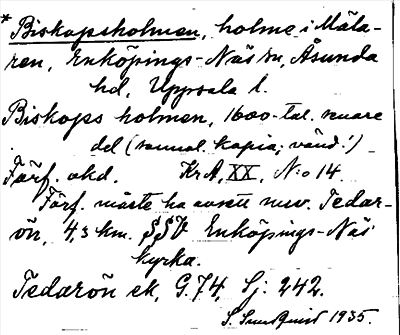 * Biskopsholmen, holme i Mäla-
ren, Enköpings-Näs sn, Åsunda
hd, Uppsala l.
Biskops holmen, 1600-tal. senare
del (samml. kopia; vänd!)
Förf. okd. KrA, XX, N:o 14.
Förf. måste ha avsett nuv. Tedar-
ön, 4,3 km. SSV Enköpings-Näs
kyrka.
Tedarön ek, G. 74, Sj: 242.
S. Sundquist 1935.